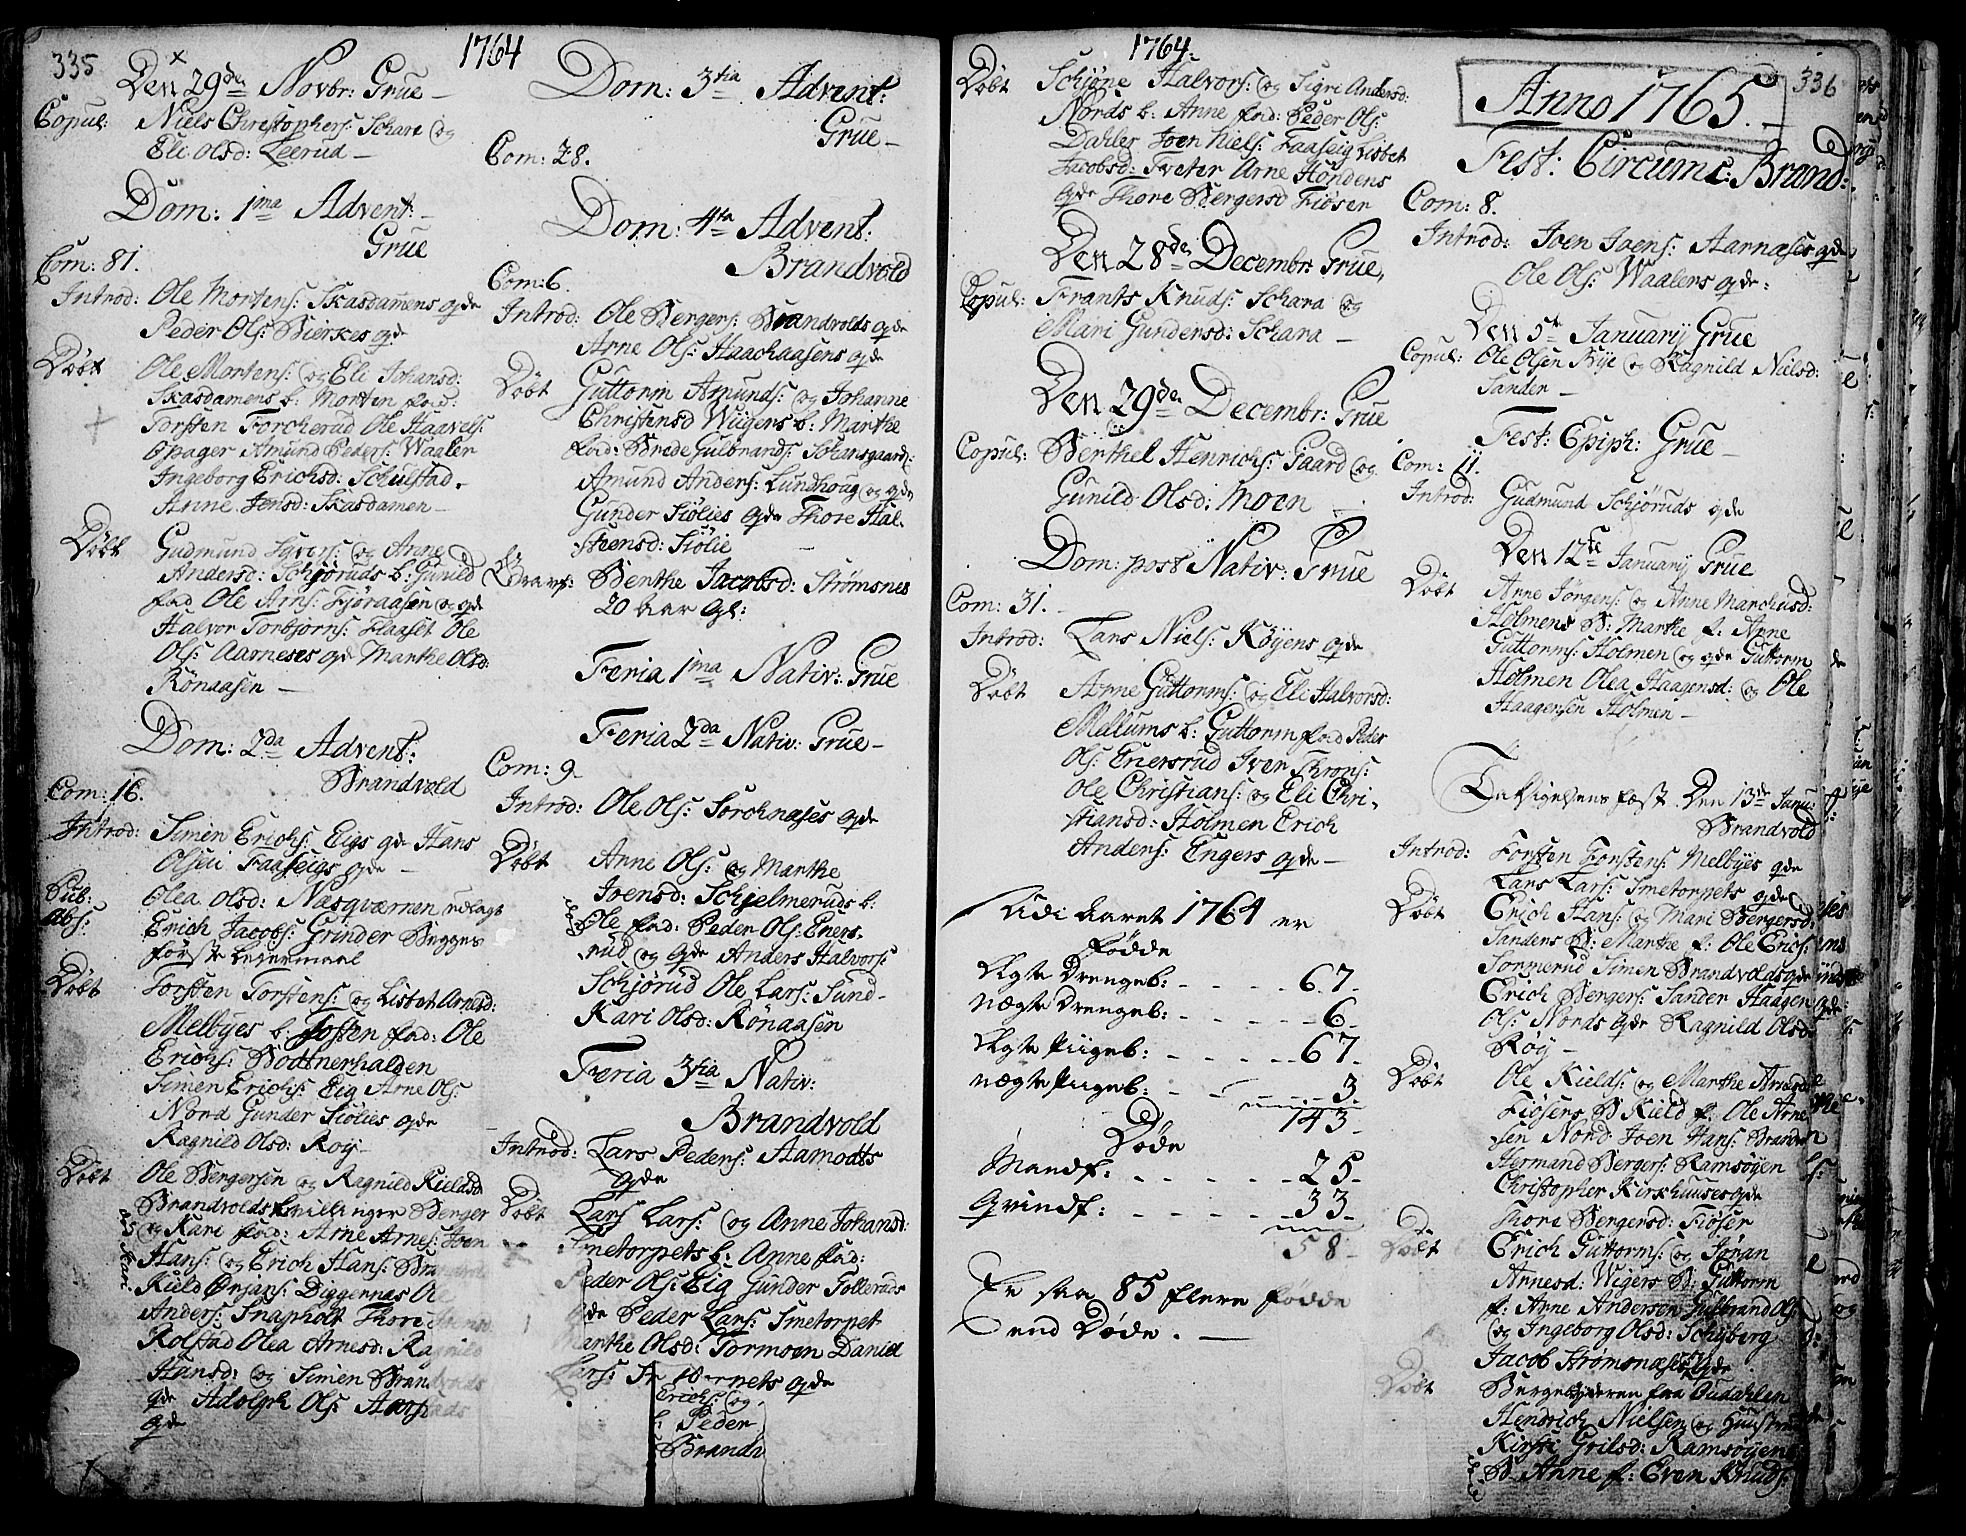 335
1764
Den 29de Novbr: Grue
Copul: Niels Christophers: Schara og
Eli Olsd: Leerud
Dom: 1ma Advent:
Grue
Com: 81.
Introd: Ole Mortens: Skasdamens qde
Peder Ols: Bierkes qde
Döbt Ole Mortens: og Eli Johansd:
Skasdamens b: Morten fad:
Torsten Torcherud Ole Haavels:
Opager Amund Peders: Waaler
Ingeborg Erichsd: Schulstad.
Anne Jensd: Skasdamen
Döbt Gudmund Syvers: og Anne
Andersd: Schjöruds b: Gunild
fad Ole Arns: Fjöraasen og qde
Halvor Torbjörns: Flaaset Ole
Ols: Aarneses qde Marthe Olsd:
Rönaasen
Dom: 2da Advent:
Brandvold
Com: 16.
Introd: Simen Erichs: Eigs qde Hans
Olsen Faaseigs qde
Pub: abs: Olea Olsd: Næsqværnen udlagt
Erich Jacobs: Grinder Begges
förste Leiermaal
Döbt Torsten Torstens: og Lisbet Arnesd:
Melbyes b: Josten fad: Ole
Erichs: Bottnerhalden
Simen Erichs: Eig Arne Ols:
Nord Gunder Siölies qde
Ragnild Olsd: Roy
Döbt Ole Bergersen og Ragnild Kieldsd
Brandvolds tvillinger Berger
og Kari fad: Arne Arnes: Joen
Hans: og Erich Hans:
Kield Örjans: Diggernæs Ole
Anders: Snapholt Thore
Rolstad Olea Arnesd: Ragnild
Hansd: og Simen Brandvolds
qde Adolph Ols:
qde
Dom: 3tia Advent:
Grue
Com: 28.
Dom: 4ta Advent:
Brandvold
Com: 6.
Introd: Ole Bergers: Brandvolds qde
Arne Ols: Haachaasens qde
Döbt Guttorm Amunds: og Johanne
Christensd Wiigers b: Marthe
fad: Brede Gulbrands: Johansgaard:
Amund Anders: Lundhoug og qde
Gunder Siölies qde Thore Hal-
steensd: Siölie
Begrav: Berthe Jacobsd: Strömsnes
20 Aar gl:
Feria 1ma Nativ: Grue
Feria 2da Nativ: Grue
Com: 9
Introd: Ole Ols: Torchnæses qde
Döbt Anne Ols: og Marthe
Ivensd: Schjelmeruds b:
Ole fad: Peder Ols: Eners-
rud og qde Anders Halvors:
Schjörud Ole Lars: Sund
Kari Olsd: Rönaasen
Feria 3tia Nativ:
Brandvold
Introd: Lars Peders: Aamodts
qde
Döbt Lars Lars: og Anne Johansd:
Smetorpets b: Anne fad:
Peder Ols: Eig Gunder Tolleruds
qde Peder Lars: Smetorpet
Marthe Olsd: Tormoen Daniel
Lars: qde
Erichs: og
b: Peder
Brandv
1764
Döbt Schjöne Halvors: og Sigri Andersd:
Nords b: Anne fad: Peder Ols:
Dahler Joen Niels: Faaseig Lisbet
Jacobsd: Tveter Arne Höndens
qde Thore Bergersd Fiösen
Den 28de Decembr: Grue,
Copul: Frants Knuds: Schara og
Mari Gundersd: Schara
Den 29de Decembr: Grue
Copul: Berthel Henrichs: Gaard og
Gunild Olsd: Moen
Dom: post Nativ: Grue
Com: 31.
Introd: Lars Niels: Köyens qde
Döbt Arne Guttorms: og Eli Halvorsd:
Mellums b: Guttorm fad Peder
Ols: Enersrud Iver Throns:
Ole Christians: og Eli Chri-
stiansd: Holmen Erich
Anders: Engers qde
Udi Aaret 1764 er
Födde
Ægte Drengeb: 67
uægte Drengeb: 6
Ægte Piigeb: 67
uægte Piigeb: 3
143
Döde
Mandf: 25
Qvindf: 33
58
Er saa 85 flere födde
end Döde.
336
Anno 1765
Fest: Circumc: Brand:
Com: 8.
Introd: Joen Joens: Aarnæses qde
Ole Ols: Waalers qde:
Den 5te Januarij Grue
Copul: Ole Olsen Rye og Ragnild Nielsd:
Sander
Fest: Epiph: Grue
Com: 11.
Introd: Gudmund Schjöruds qde
Den 12te Januarij Grue
Döbt Arne Jörgens: og Anne Marchusd:
Holmens B: Marthe f: Arne
Guttorms: Holmen og qde Guttorm
Holmen Olea Haagensd: og Ole
Haagensen Holmen
Taksigelsens fæst Den 13de Janu:
Brandvold
Introd: Torsten Torstens: Melbyes qde
Lars Lars: Smetorpets qde
Döbt Erich Hans: og Mari Bergersd:
Sandens B: Marthe f: Ole Erichs:
Tormerud Simen Brandvolds qde
Erich Bergers: Sander Haagen
Ols: Nords qde Ragnild Olsd:
Röy
Döbt Ole Kields: og Marthe Arnesd
Fiösens B Kield f: Ole Arne
sen Nord Joen Hans: Brander
Hermand Bergers: Ramsöyen
Christopher Kirkhuuses qde
Thore Bergersd: Fiöser
Döbt Erich Guttorms: og Jöran
Arnesd: Wigers B: Guttorm
f: Arne Andersen Gulbrand Ols:
og Ingeborg Olsd: Schyberg
Jacob Strömsnæses qde
Döbt fra Oudahlen
Hendrich Nielsen og Huustru
Kirsti Grilsd: Ramsöyens
B Anne f: Even Knuds: